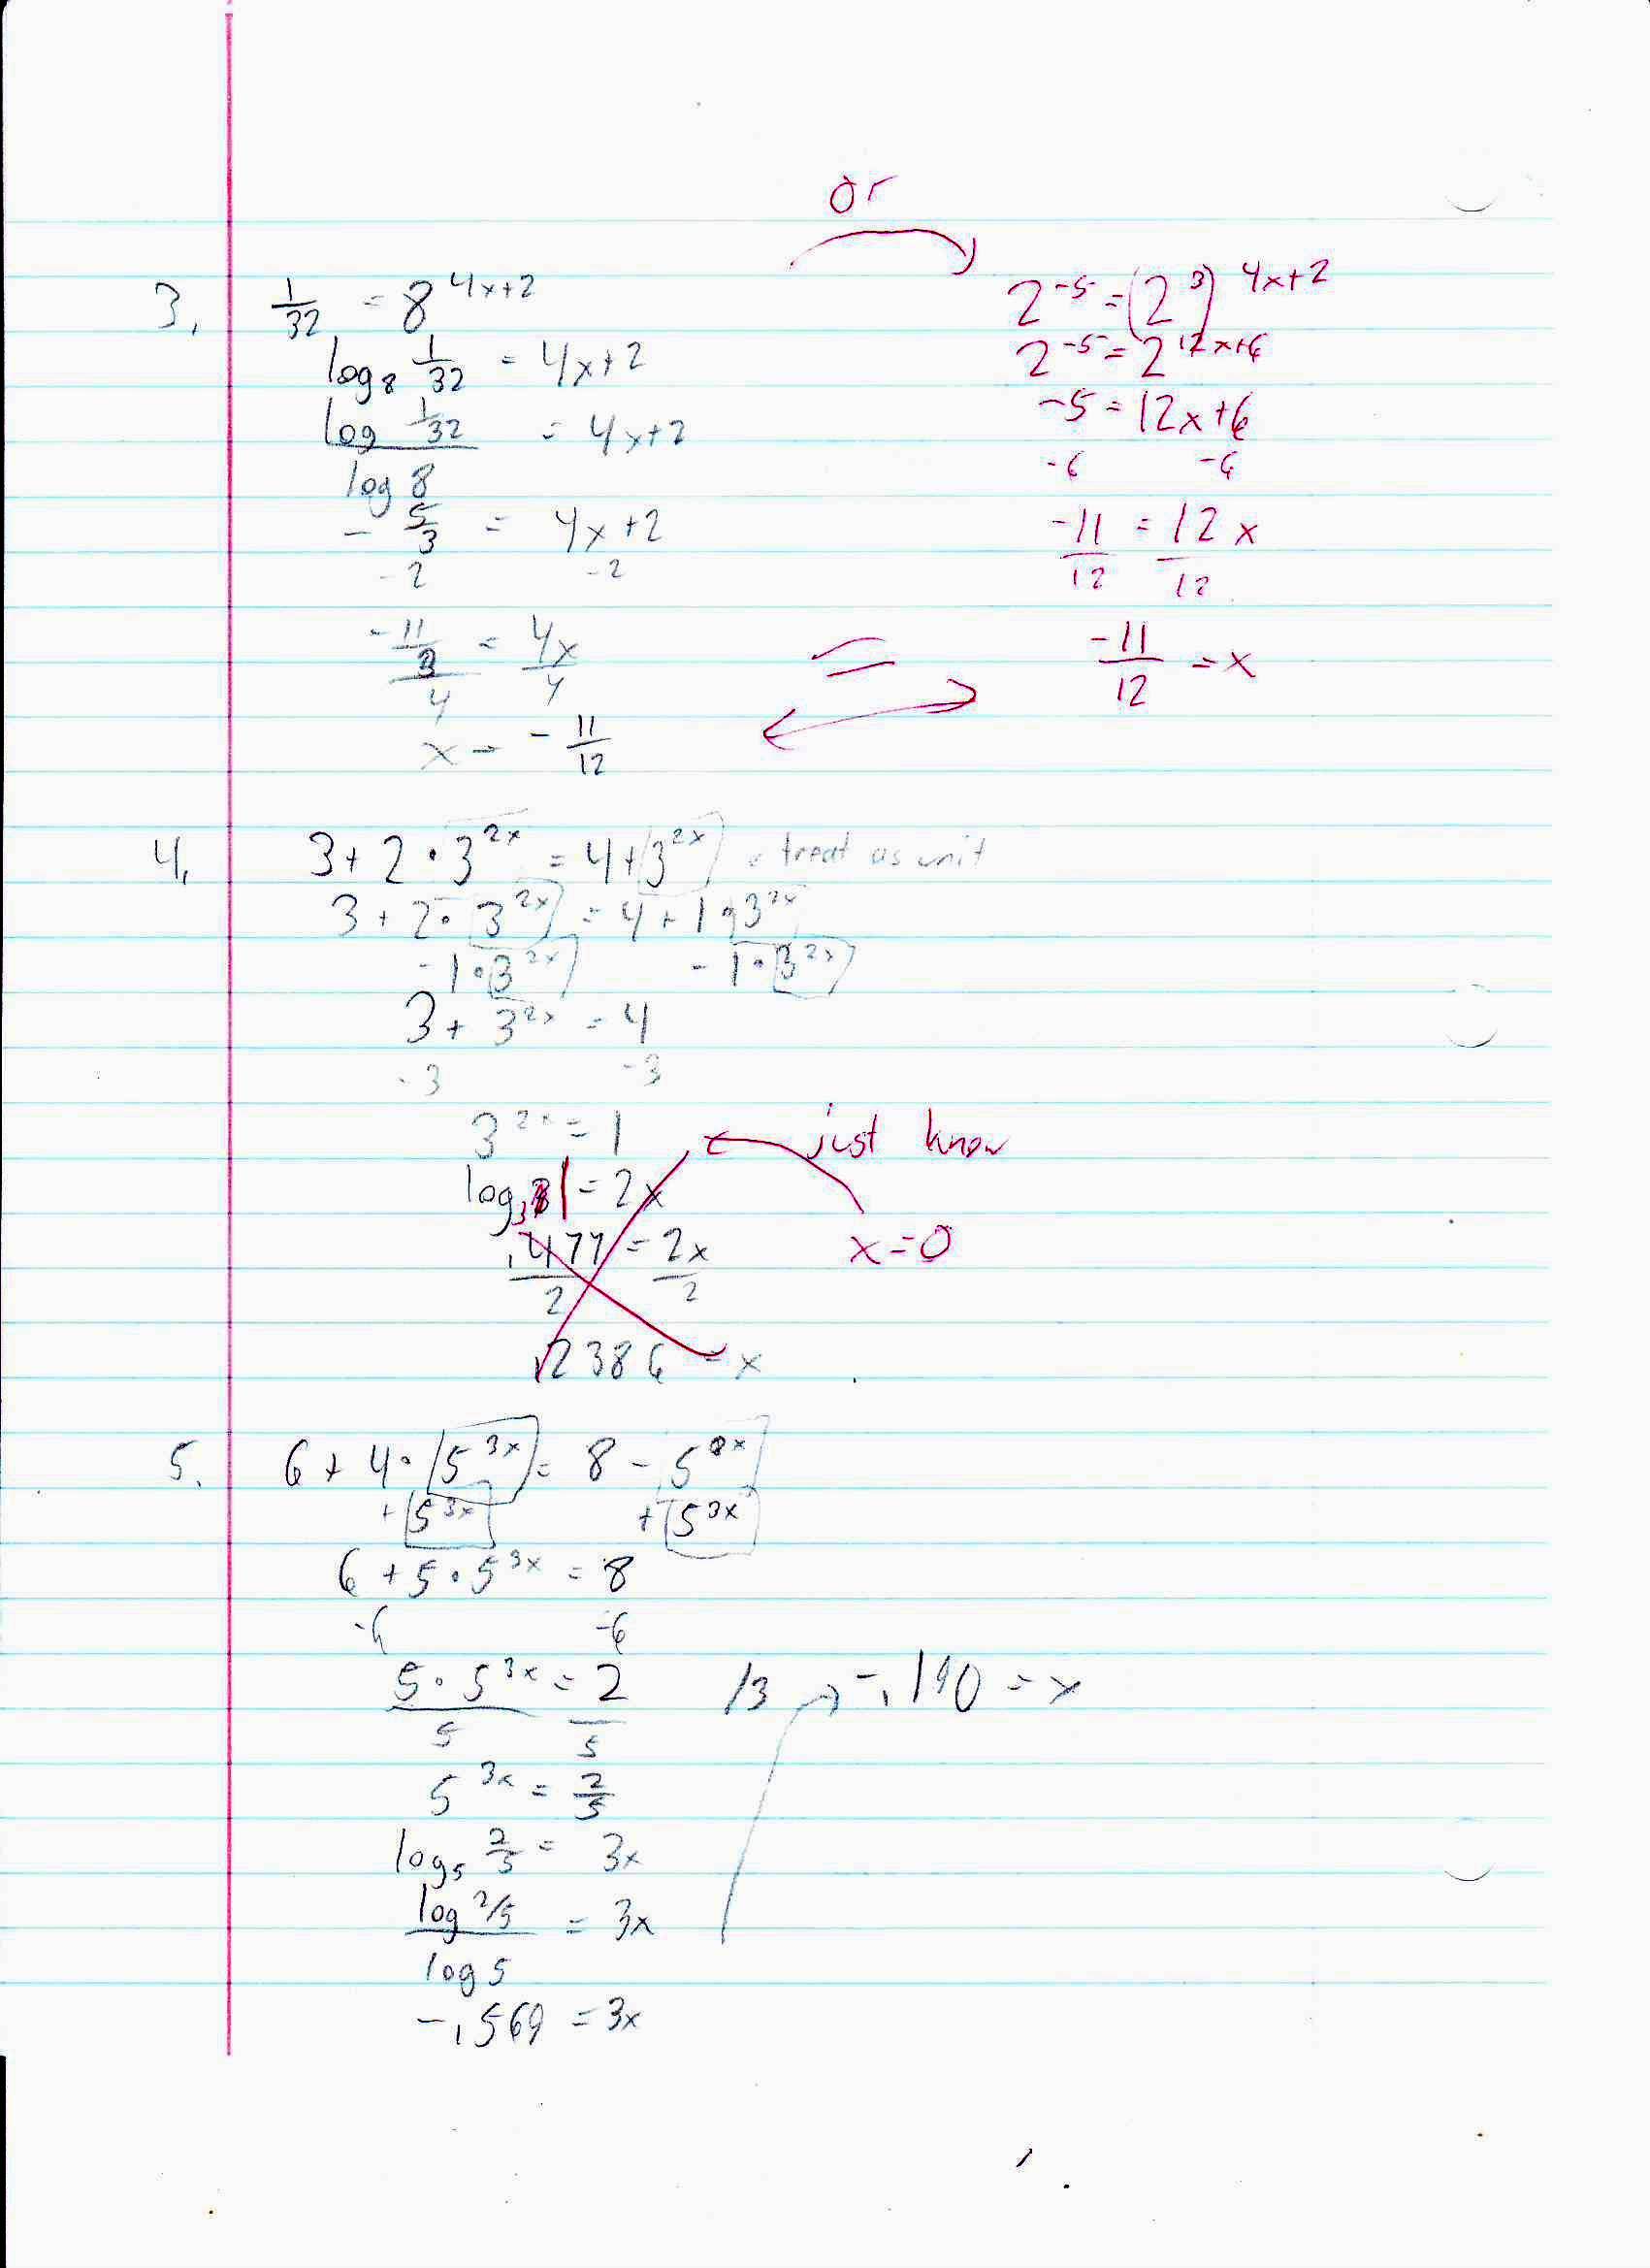 or
3. 1/32 = 8^(4x+2)
log₈ 1/32 = 4x+2
log 1/32 / log 8 = 4x+2
- 5/3 = 4x+2
-2 -2
-11/3 / 4 = 4x/4
x = - 11/12
2^-5 = (2^3)^(4x+2)
2^-5 = 2^(12x+6)
-5 = 12x+6
-6 -6
-11/12 = 12x/12
-11/12 = x
=
4. 3 + 2 · 3^2x = 4 + 3^2x treat as unit
3 + 2 · 3^2x = 4 + 1 · 3^2x
-1 · 3^2x -1 · 3^2x
3 + 3^2x = 4
-3 -3
3^2x = 1 just know
log₃ 1 = 2x
.477/2 = 2x/2 x = 0
.2386 = x
5. 6 + 4 · 5^3x = 8 - 5^3x
+ 5^3x + 5^3x
6 + 5 · 5^3x = 8
-6 -6
5 · 5^3x / 5 = 2/5
5^3x = 2/5
log₅ 2/5 = 3x
log 2/5 / log 5 = 3x
-.569 = 3x
/3 -.190 = x